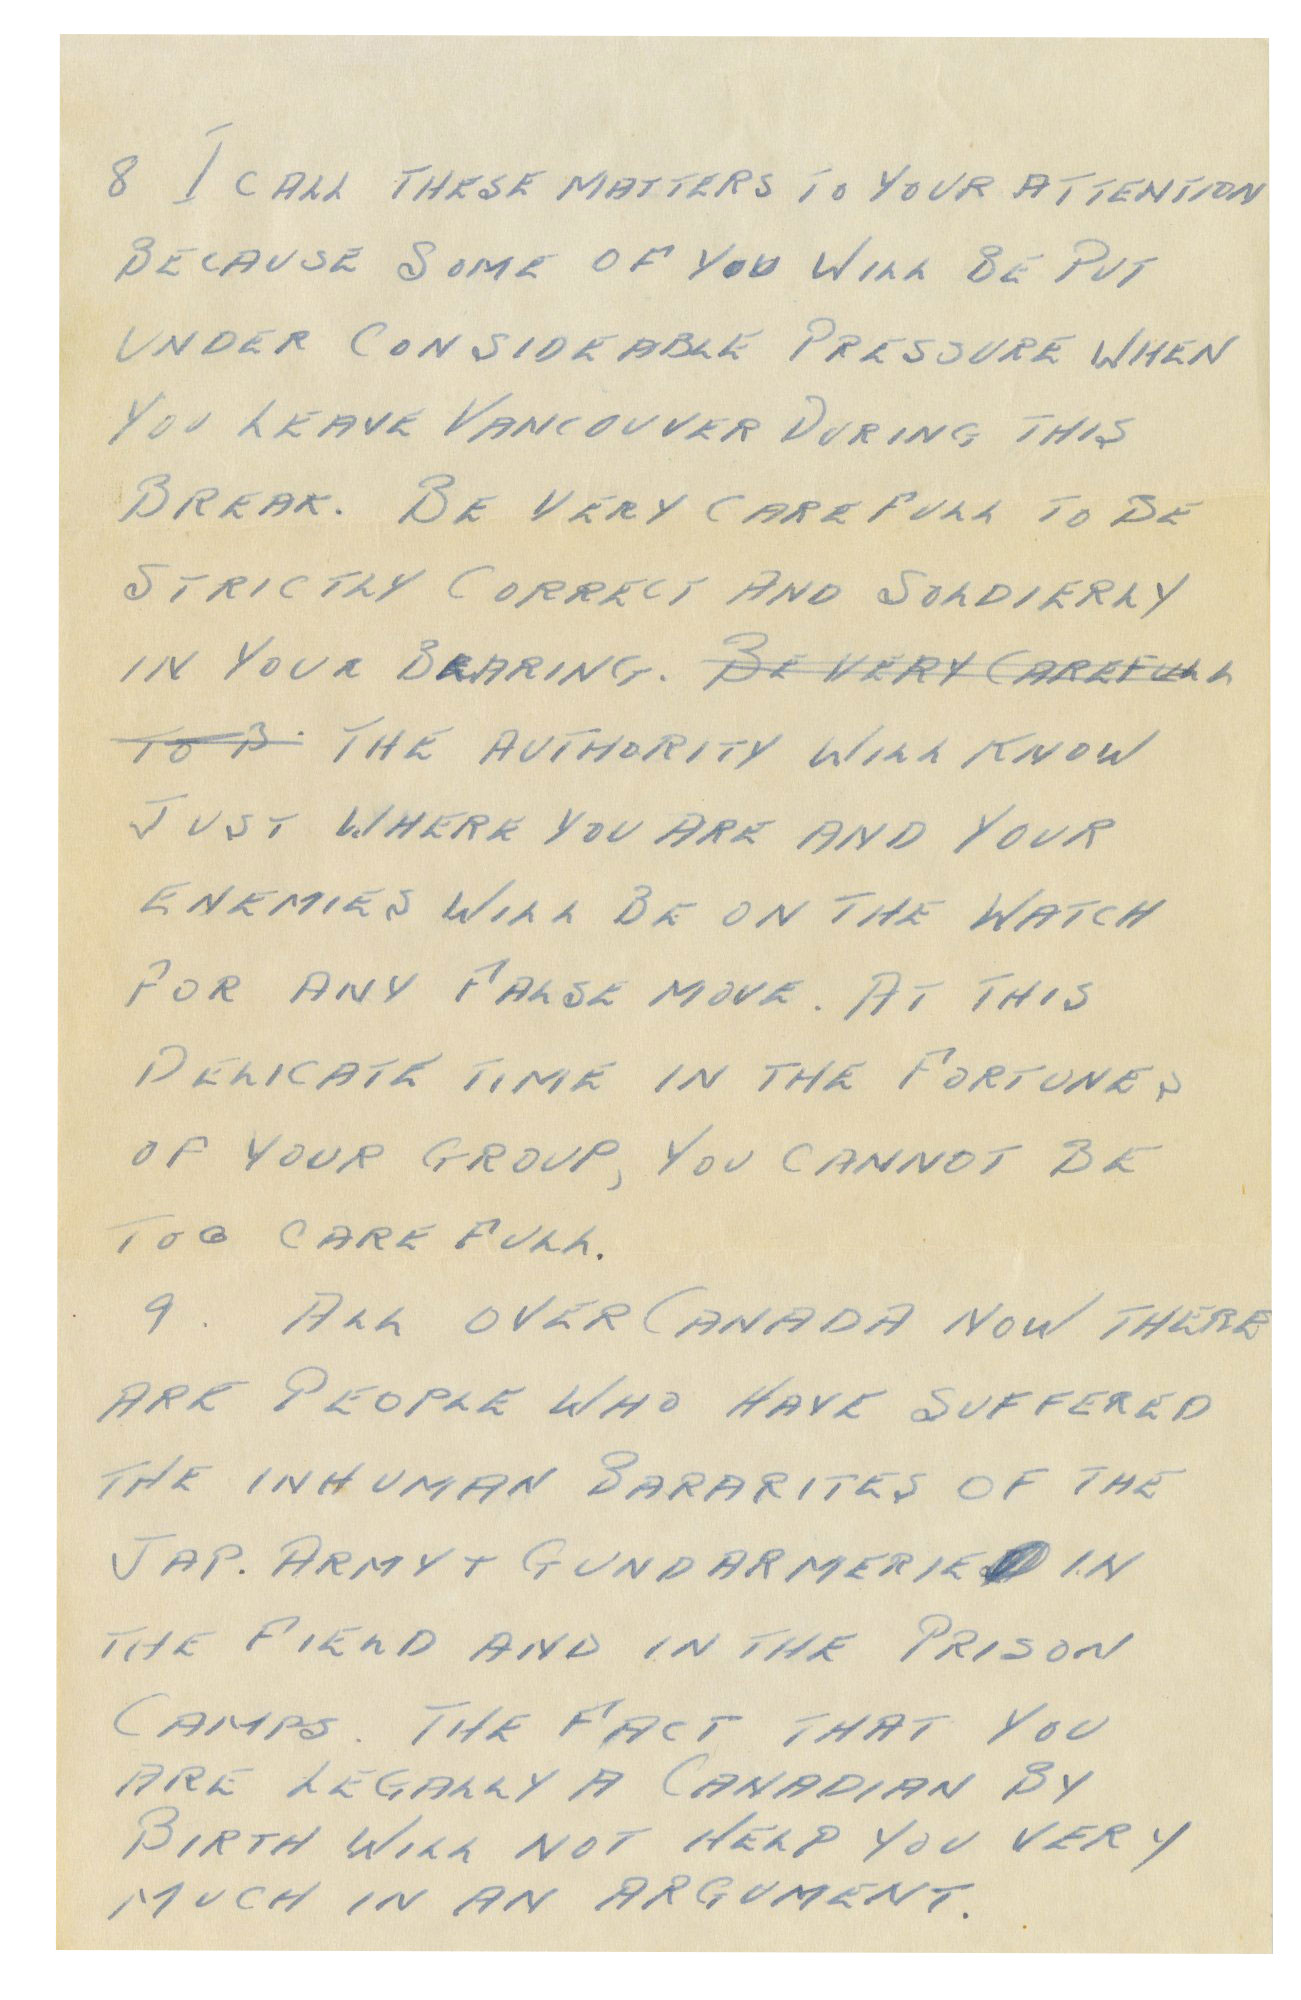 8 I CALL THESE MATTERS TO YOUR ATTENTION
BECAUSE SOME OF YOU WILL BE PUT
UNDER CONSIDEABLE PRESSURE WHEN
YOU LEAVE VANCOUVER DURING THIS
BREAK. BE VERY CAREFULL TO BE
STRICTLY CORRECT AND SOLDIERLY
IN YOUR BEARING. BE VERY CAREFULL
TO B. THE AUTHORITY WILL KNOW
JUST WHERE YOU ARE AND YOUR
ENEMIES WILL BE ON THE WATCH
FOR ANY FALSE MOVE. AT THIS
DELICATE TIME IN THE FORTUNES
OF YOUR GROUP, YOU CANNOT BE
TOO CAREFULL.
9. ALL OVER CANADA NOW THERE
ARE PEOPLE WHO HAVE SUFFERED
THE INHUMAN BARARITES OF THE
JAP. ARMY + GUNDARMERIE IN
THE FIELD AND IN THE PRISON
CAMPS. THE FACT THAT YOU
ARE LEGALLY A CANADIAN BY
BIRTH WILL NOT HELP YOU VERY
MUCH IN AN ARGUMENT.